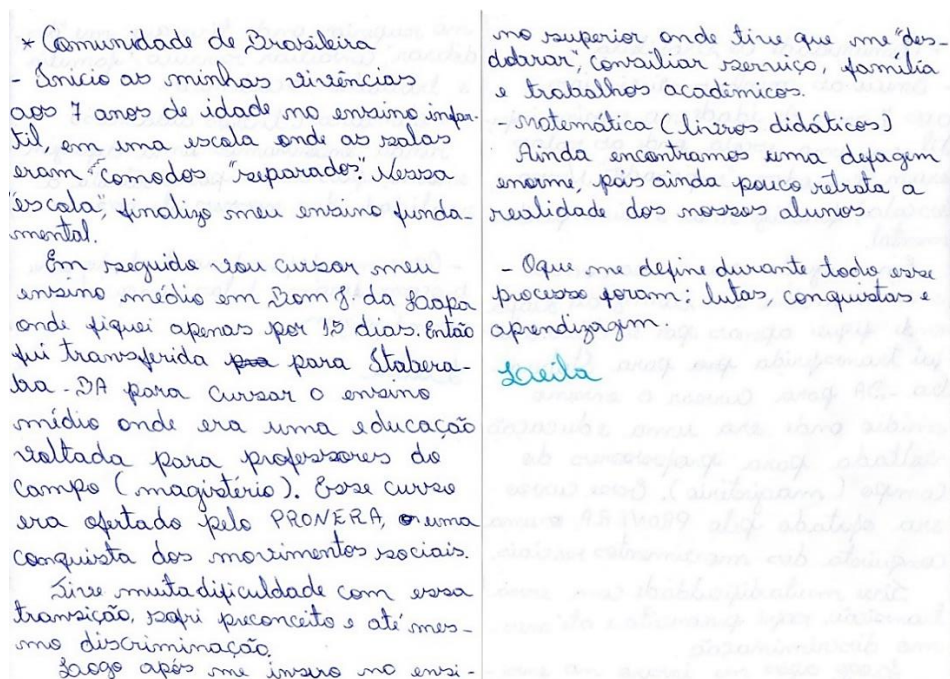 * Comunidade de Brasileira
- Início as minhas vivências
aos 7 anos de idade no ensino infan-
til, em uma escola onde as salas
eram "comodos" "separado". Nessa
"escola", finalizo meu ensino funda-
mental.
Em seguida vou cursar meu
ensino médio em Bom J. da Lapa
onde fiquei apenas por 15 dias. Então
fui transferida para Itabera-
ba - BA para cursar o ensino
médio onde era uma educação
voltada para professores do
campo (magistério). Esse curso
era ofertado pelo PRONERA, uma
conquista dos movimentos sociais.
Tive muita dificuldade com essa
transição, sofri preconceito e até mes-
mo discriminação.
Logo após me insiro no ensi-
no superior onde tive que me "des-
dobrar", consiliar serviço, família
e trabalhos acadêmicos.
- Matemática (livros didáticos)
Ainda encontramos uma defagem
enorme, pois ainda pouco retrata a
realidade dos nossos alunos
- Oque me define durante todo esse
processo foram: lutas, conquistas e
aprendizagem.
Leila